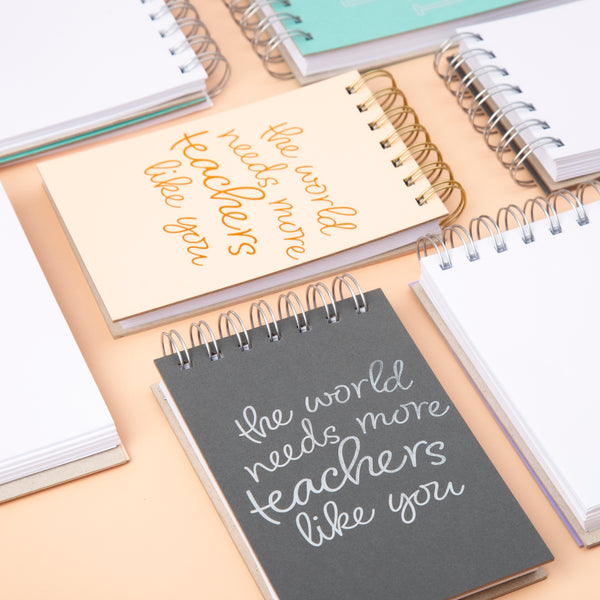 the world
needs more
teachers
like you
the world
needs more
teachers
like you